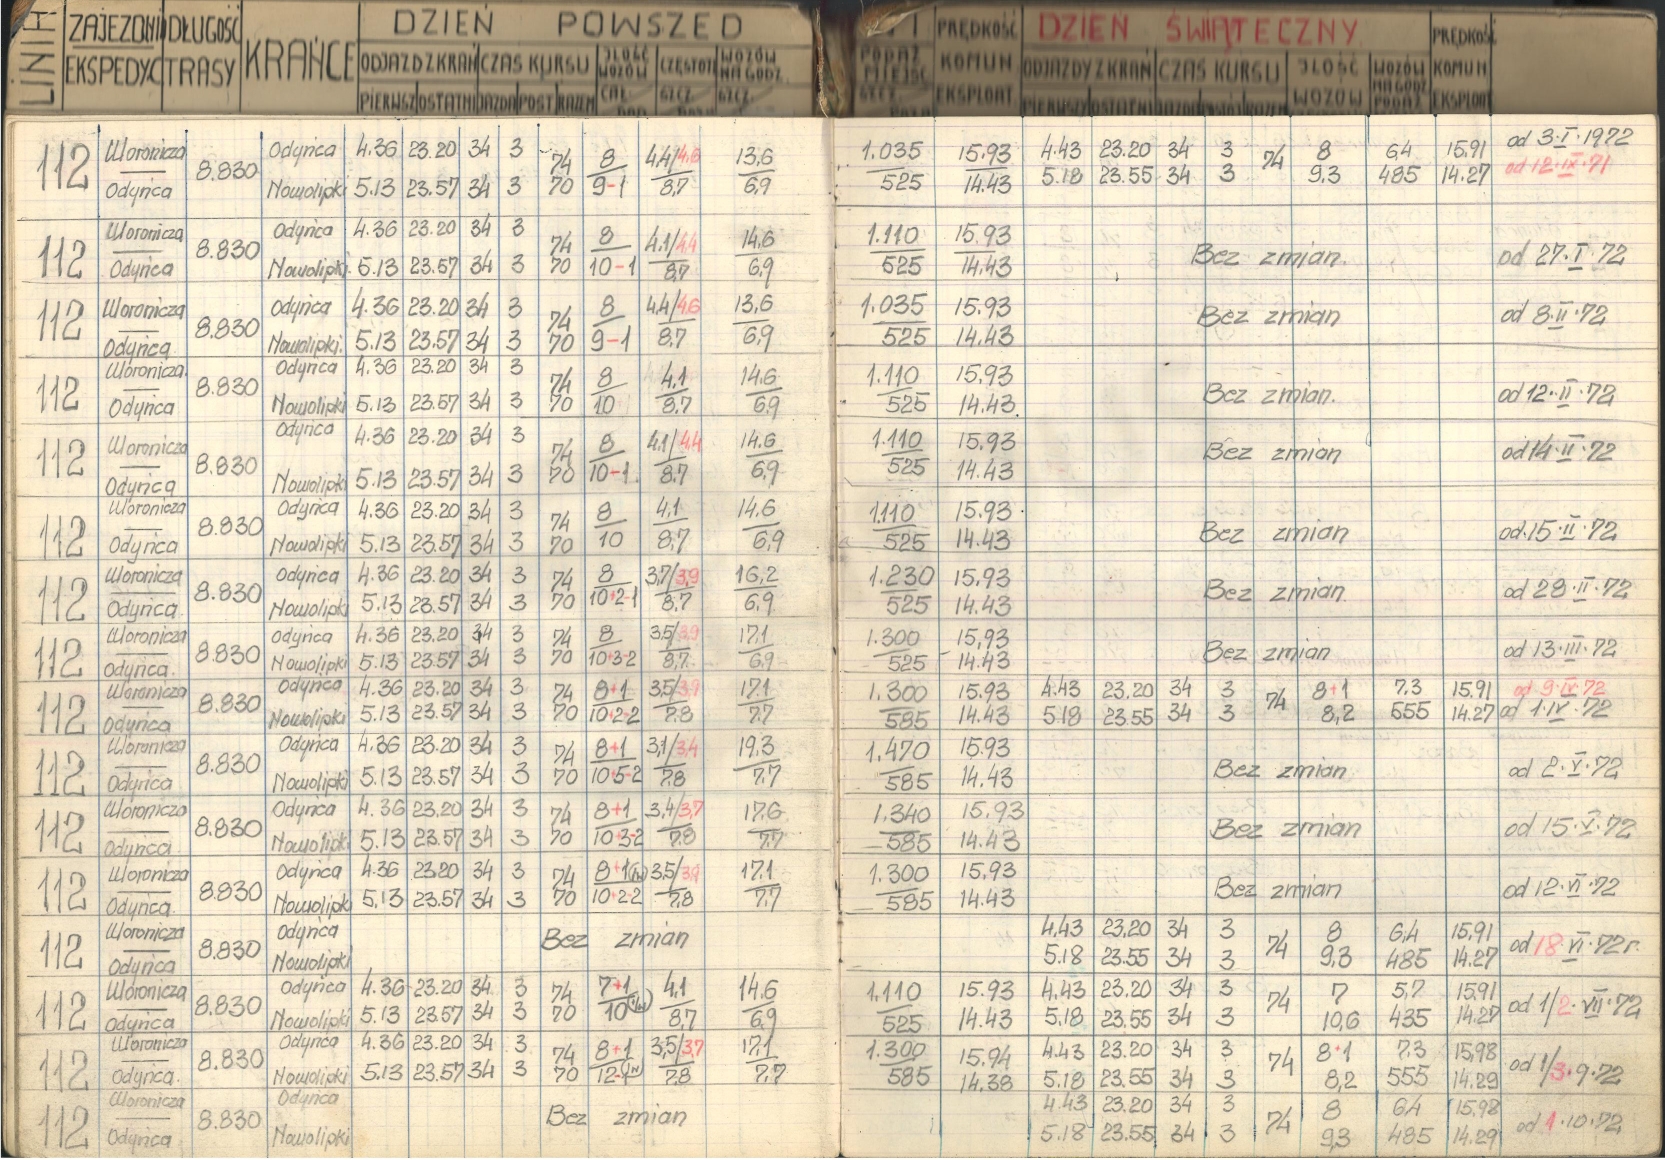 LINIA ZAJEZDNI DŁUGOŚĆ KRAŃCE DZIEŃ POWSZED PRĘDKOŚĆ DZIEŃ ŚWIĄTECZNY PRĘDKOŚ
EKSPEDYC TRASY ODJAZD Z KRAŃ CZAS KURSU ILOŚĆ WOZÓW CZĘSTOT WOZÓW NA GODZ. PODAŻ MIEJSC KOMUN ODJAZDY Z KRAŃ CZAS KURSU ILOŚĆ WOZÓW WOZÓW NA GODZ PODAŻ KOMUN
PIERWSZ OSTATNI JAZDA POST RAZEM SZCZ. SZCZ. EKSPLOAT PIERWSZY OSTATNI JAZDA RAZEM EKSPLOAT
112 Woronicza 8.830 Odyńca 4.36 23.20 34 3 74 8 4,4/4,6 13,6 1.035 15.93 4.43 23.20 34 3 74 8 6,4 15,91 od 3·I·1972
Odyńca Nowolipki 5.13 23.57 34 3 70 9-1 8,7 6,9 525 14.43 5.18 23.55 34 3 9,3 485 14.27 od 12·IX·71
112 Woronicza 8.830 Odyńca 4.36 23.20 34 3 74 8 4,1/4,4 14,6 1.110 15.93 Bez zmian. od 27·I·72
Odyńca Nowolipki 5.13 23.57 34 3 70 10-1 8,7 6,9 525 14.43
112 Woronicza 8.830 Odyńca 4.36 23.20 34 3 74 8 4,4/4,6 13,6 1.035 15.93 Bez zmian od 8·II·72
Odyńca Nowolipki. 5.13 23.57 34 3 70 9-1 8,7 6,9 525 14.43
112 Woronicza 8.830 Odyńca 4.36 23.20 34 3 74 8 4,1 14,6 1.110 15,93 Bez zmian. od 12·II·72
Odyńca Nowolipki 5.13 23.57 34 3 70 10 8,7 6,9 525 14.43
112 Woronicza 8.830 Odyńca 4.36 23.20 34 3 74 8 4,1/4,4 14,6 1.110 15,93 Bez zmian od 14·II·72
Odyńca Nowolipki 5.13 23.57 34 3 70 10-1 8,7 6,9 525 14.43
112 Woronicza 8.830 Odyńca 4.36 23.20 34 3 74 8 4,1 14,6 1.110 15,93 Bez zmian od 15·II·72
Odyńca Nowolipki 5.13 23.57 34 3 70 10 8,7 6,9 525 14.43
112 Woronicza 8.830 Odyńca 4.36 23.20 34 3 74 8 3,7/3,9 16,2 1.230 15,93 Bez zmian od 28·II·72
Odyńca Nowolipki 5.13 23.57 34 3 70 10+2-1 8,7 6,9 525 14.43
112 Woronicza 8.830 Odyńca 4.36 23.20 34 3 74 8 3,5/3,9 17,1 1.300 15,93 Bez zmian od 13·III·72
Odyńca. Nowolipki 5.13 23.57 34 3 70 10+3-2 8,7 6,9 525 14.43
112 Woronicza 8.830 Odyńca 4.36 23.20 34 3 74 8+1 3,5/3,9 17,1 1.300 15,93 4.43 23.20 34 3 74 8+1 7,3 15,91 od 9·IV·72
Odyńca Nowolipki 5.13 23.57 34 3 70 10+2-2 7,8 7,7 585 14.43 5.18 23.55 34 3 8,2 555 14.27 od 1·IV·72
112 Woronicza 8.830 Odyńca 4.36 23.20 34 3 74 8+1 3,1/3,4 19,3 1.470 15,93 Bez zmian od 2·V·72
Odyńca Nowolipki 5.13 23.57 34 3 70 10+5-2 7,8 7,7 585 14.43
112 Woronicza 8.830 Odyńca 4.36 23.20 34 3 74 8+1 3,4/3,7 17,6 1.340 15,93 Bez zmian od 15·V·72
Odyńca Nowolipki 5.13 23.57 34 3 70 10+3-2 7,8 7,7 585 14.43
112 Woronicza 8.830 Odyńca 4.36 23.20 34 3 74 8+1 3,5/3,9 17,1 1.300 15,93 Bez zmian od 12·VI·72
Odyńca. Nowolipki 5.13 23.57 34 3 70 10+2-2 7,8 7,7 585 14.43
112 Woronicza 8.830 Odyńca Bez zmian 4.43 23.20 34 3 74 8 6,4 15,91 od 18·VI·72r.
Odyńca Nowolipki 5.18 23.55 34 3 9,3 485 14.27
112 Woronicza 8.830 Odyńca 4.36 23.20 34 3 74 7+1 4,1 14,6 1.110 15.93 4.43 23.20 34 3 74 7 5,7 15,91 od 1/2·VII·72
Odyńca Nowolipki 5.13 23.57 34 3 70 10 8,7 6,9 525 14.43 5.18 23.55 34 3 10,6 435 14.27
112 Woronicza 8.830 Odyńca 4.36 23.20 34 3 74 8+1 3,5/3,7 17,1 1.300 15,94 4.43 23.20 34 3 74 8+1 7,3 15,98 od 1/3·9·72
Odyńca. Nowolipki 5.13 23.57 34 3 70 7,8 7,7 585 14.38 5.18 23.55 34 3 8,2 555 14.29
112 Woronicza 8.830 Odyńca Bez zmian 4.43 23.20 34 3 74 8 6,4 15,98 od 1·10·72
Odyńca Nowolipki 5.18 23.55 34 3 9,3 485 14.29